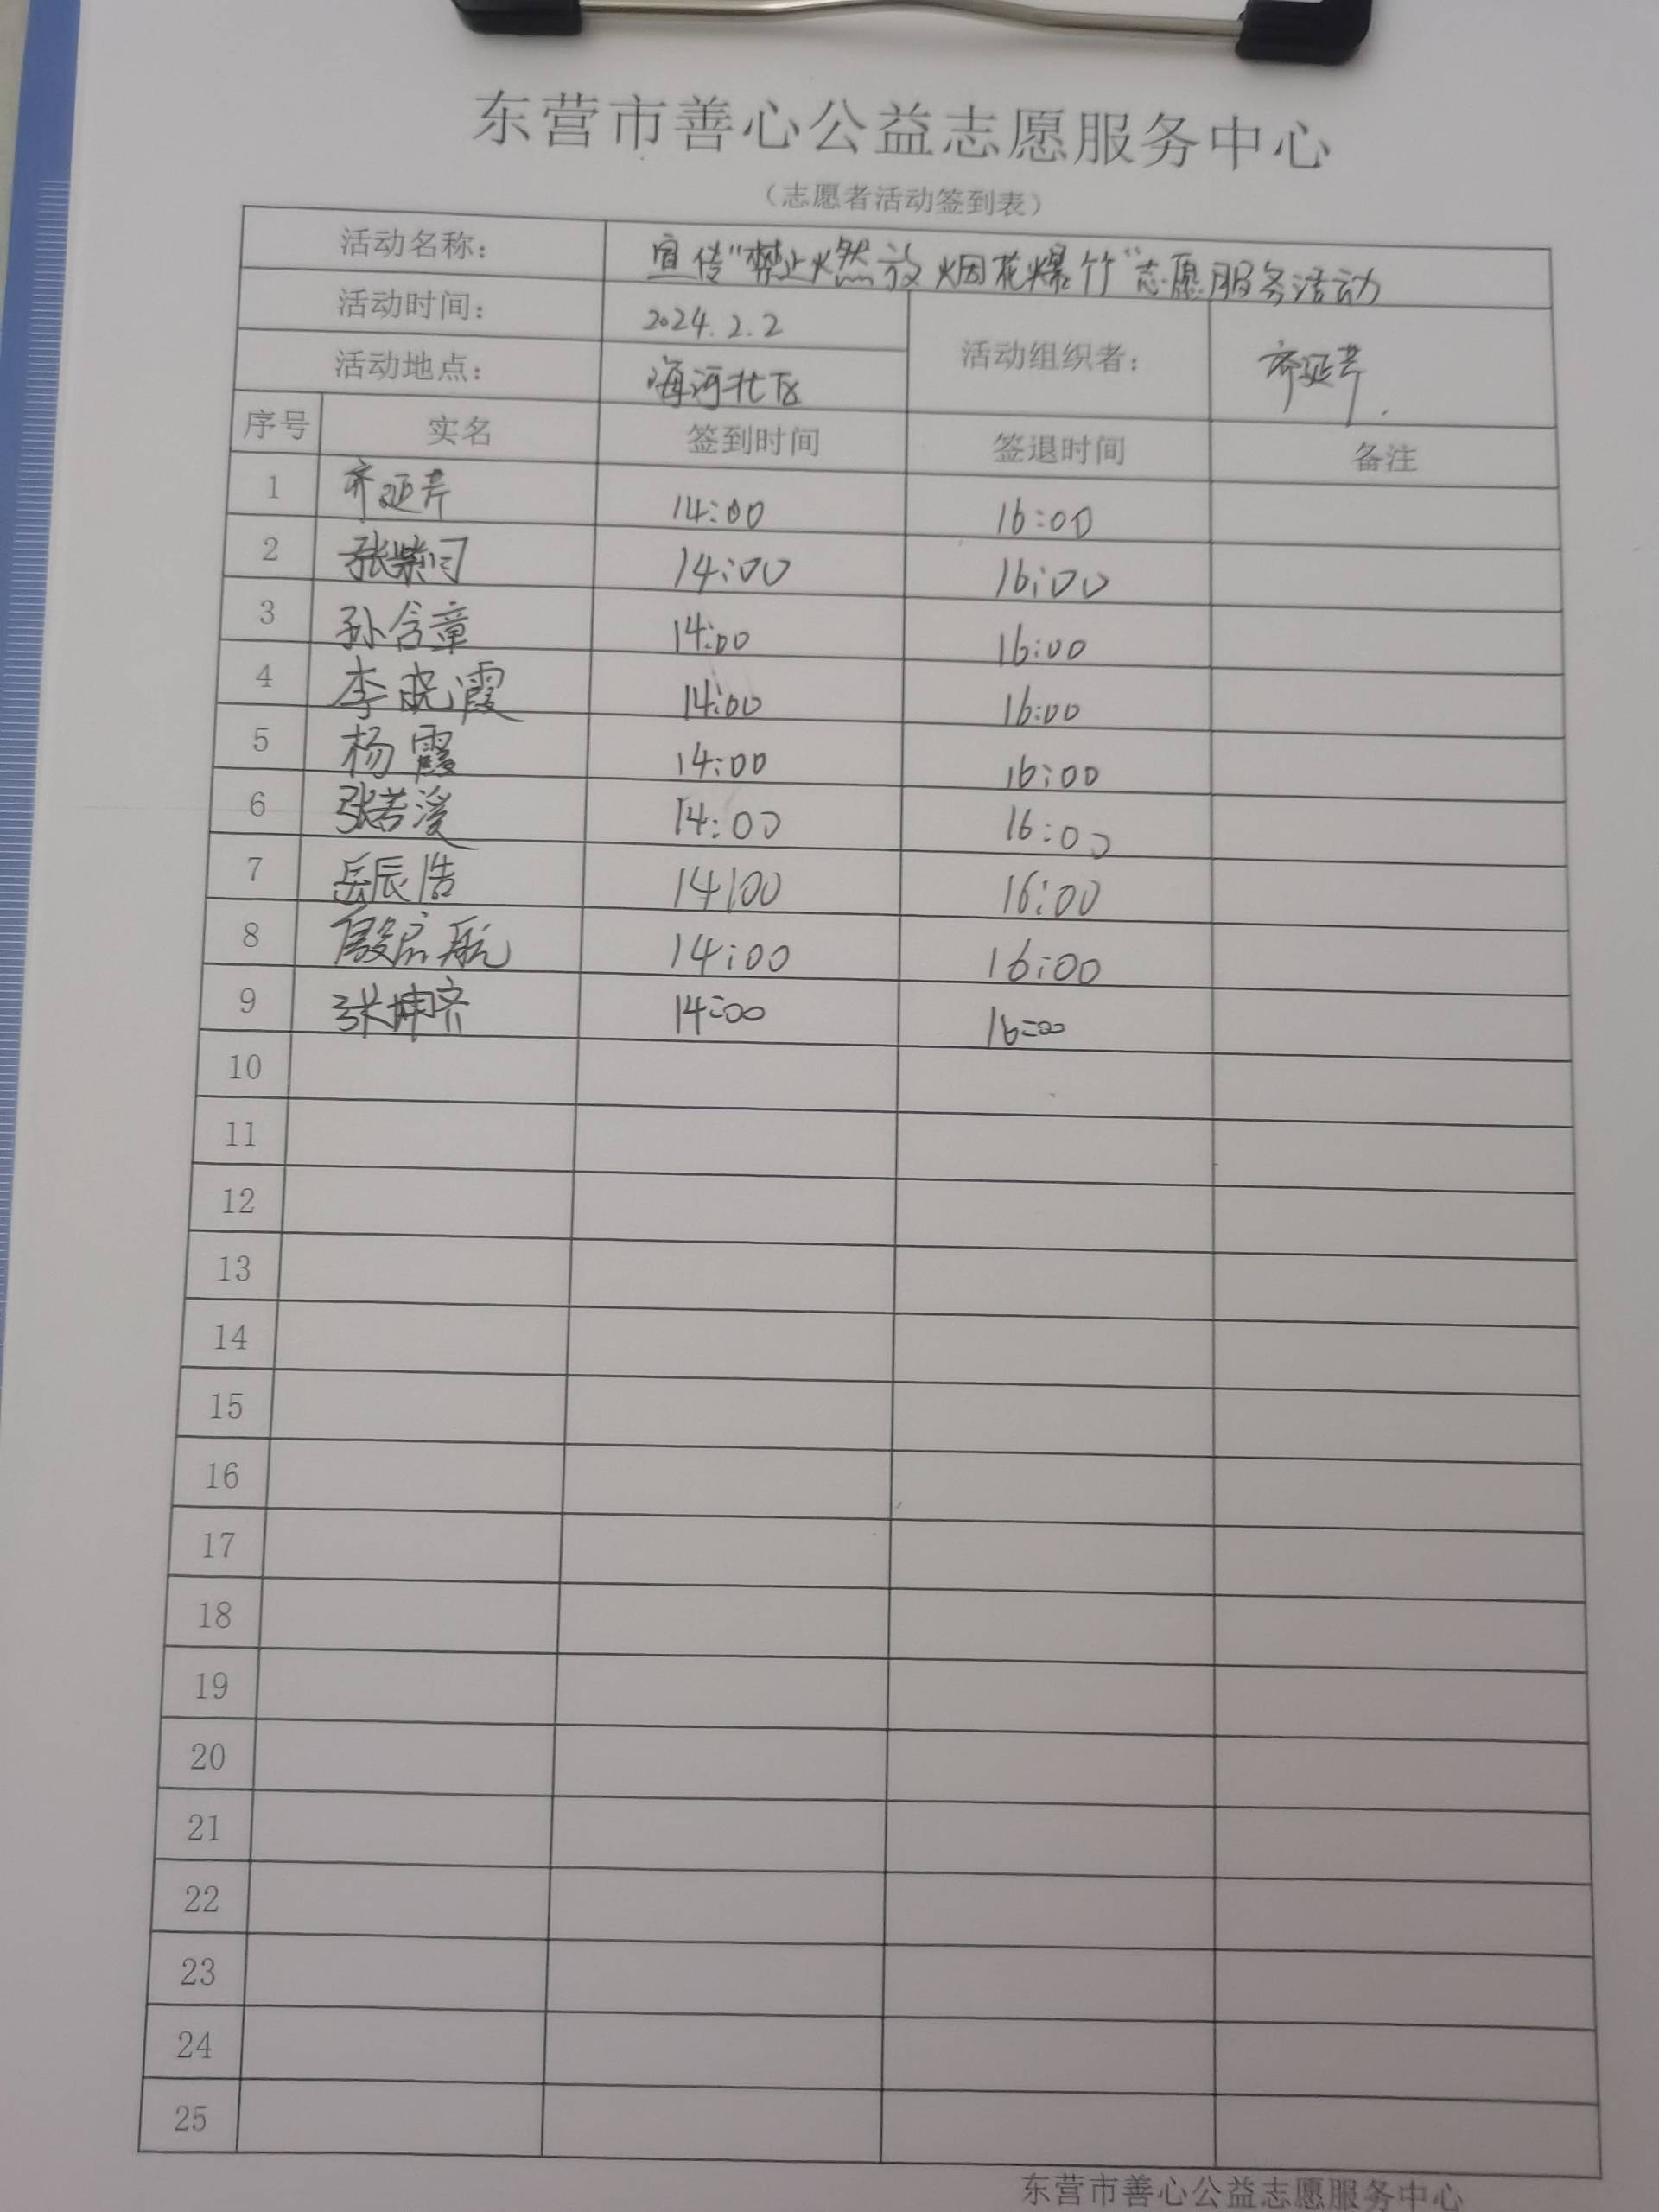 东营市善心公益志愿服务中心
（志愿者活动签到表）
活动名称： 宣传“禁止燃放烟花爆竹”志愿服务活动
活动时间： 2024.2.2 活动组织者： 齐延芹
活动地点： 海河北区
序号 实名 签到时间 签退时间 备注
1 齐延芹 14:00 16:00
2 张紫 14:00 16:00
3 孙含章 14:00 16:00
4 李晓霞 14:00 16:00
5 杨霞 14:00 16:00
6 张若溪 14:00 16:00
7 岳辰浩 14:00 16:00
8 殷启航 14:00 16:00
9 张坤齐 14:00 16:00
10
11
12
13
14
15
16
17
18
19
20
21
22
23
24
25
东营市善心公益志愿服务中心